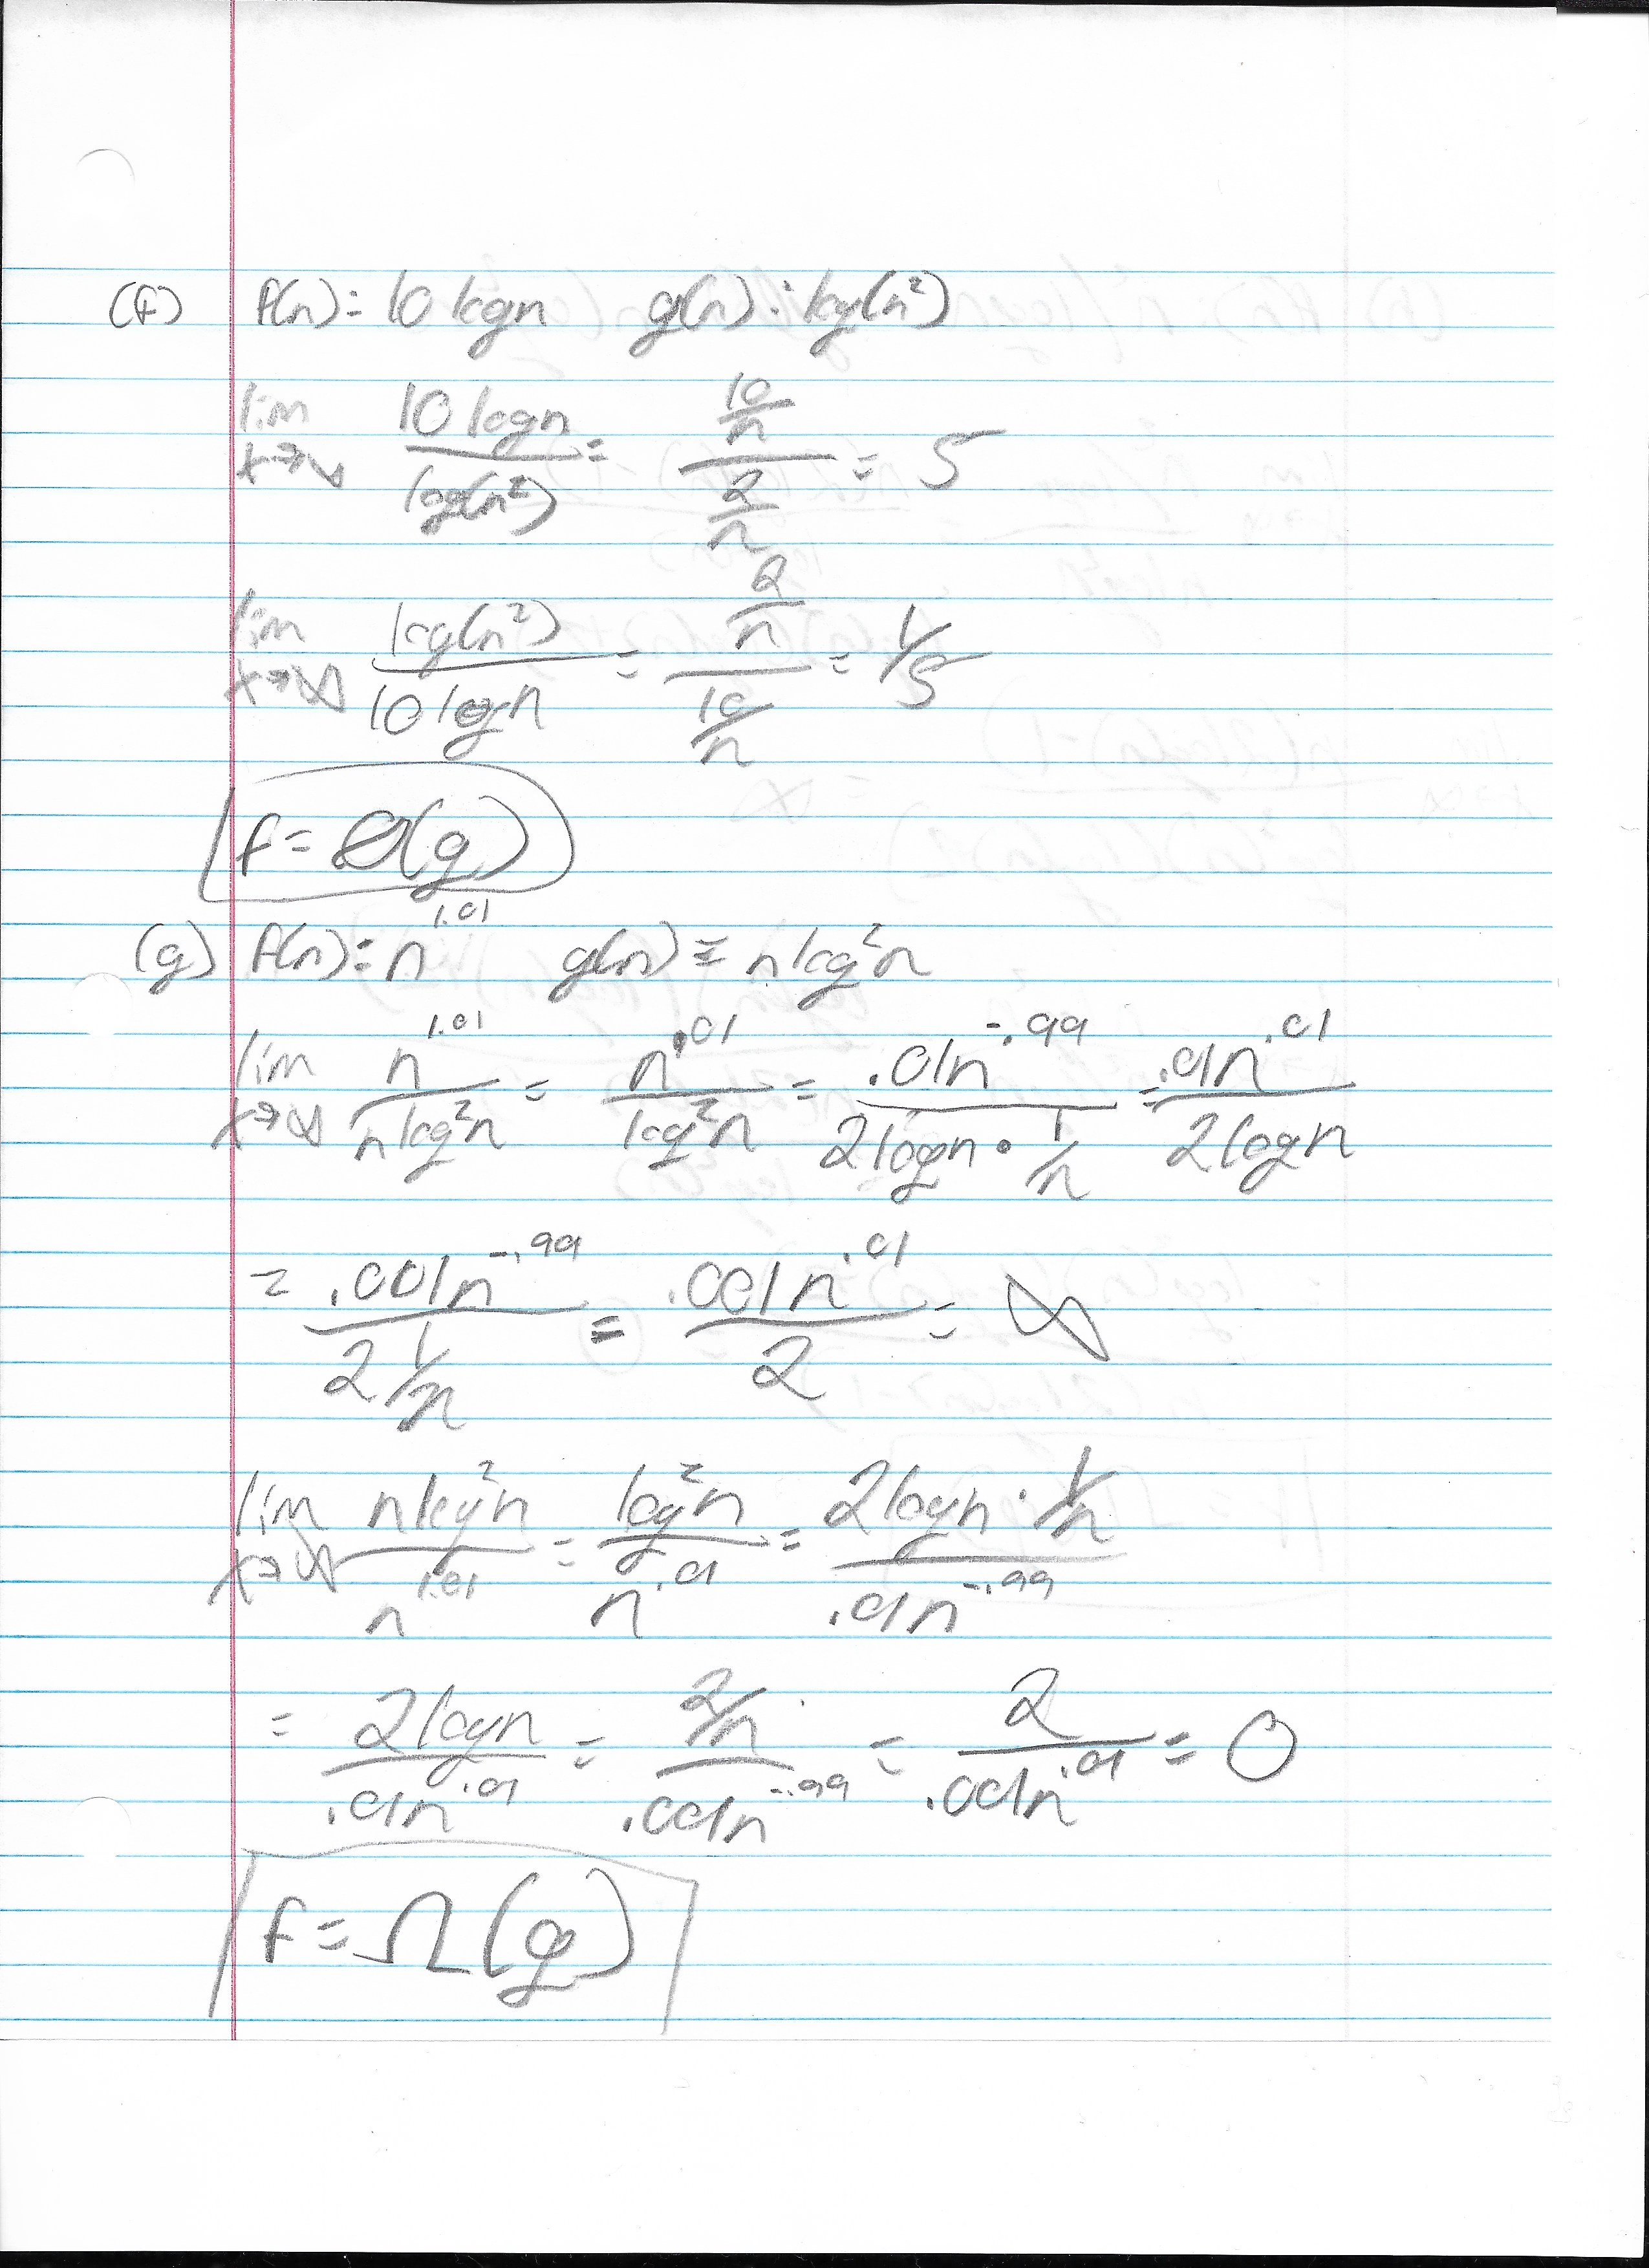 (f) f(n) = 10 log n g(n) = log(n²)
lim x→∞ (10 log n)/(log(n²)) = (10/n)/(2/n) = 5
lim x→∞ (log(n²))/(10 log n) = (2/n)/(10/n) = 1/5
f = Θ(g)
(g) f(n) = n^1.01 g(n) = n log²n
lim x→∞ (n^1.01)/(n log²n) = (n^.01)/(log²n) = (.01n^-.99)/(2 log n · 1/n) = (.01n^.01)/(2 log n)
= (.001n^-.99)/(2 1/n) = (.001n^.01)/2 = ∞
lim x→∞ (n log²n)/(n^1.01) = (log²n)/(n^.01) = (2 log n · 1/n)/(.01n^-.99)
= (2 log n)/(.01n^.01) = (2/n)/(.001n^-.99) = 2/(.001n^.01) = 0
f = Ω(g)